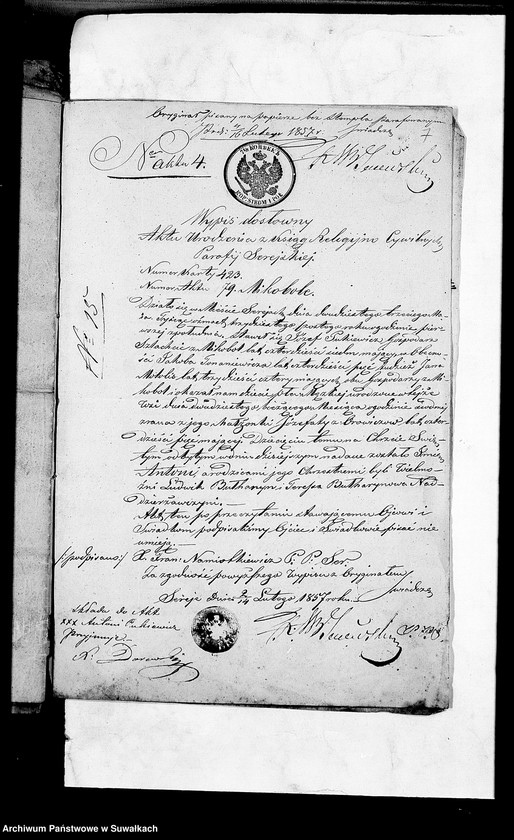 Oryginał pisany na papierze bez stempla parafowanym
Lutego 1857 r świadczę
7
No aktu 4.
7½ KOPIEJKI
No 15
Wypis dosłowny
Aktu Urodzenia z Ksiąg Religijno Cywilnych
Parafij Serejskiej
Numer Karty 423.
Numer Aktu 79. Mikobole.
Działo się w Mieście Serejach dnia dwudziestego trzeciego Ma-
ja tysiąc ośmset trzydziestego roku o godzinie pier-
wszej z południa. Stawił się Józef Gospodarz
Szlachcic z Mikobol lat czterdzieści siedm mający, w Obecno-
ści Jakóba lat czterdzieści pięć, tudzież Jana
lat trzydzieści cztery mających obu Gospodarzy z Mi-
kobol i okazał nam dziecię płci Męzkiej urodzone w tejże
Wsi dnia dwudziestego bieżącego Miesiąca o godzinie
z rana z jego Małżonki Józefaty z lat czter-
dzieści pięć mającej. Dziecięciu temu na Chrzcie Świę-
tym odbytym w dniu dzisiejszym nadane zostało Imie
Antoni, a rodzicami jego Chrzestnemi byli Wielmo-
żni Ludwik Butharyn i Teressa Butharynowa Nad-
dzierżawczyni.
Akt ten po przeczytaniu Stawającemu Ojcowi i
Świadkom podpisaliśmy Ojciec i Świadkowie pisać nie
umieją.
/:podpisano:/ X. Fran: Namiotkiewicz P. P. Ser.
Za zgodność powyższego Wypisu z Oryginałem
świadczę
Sereje Dnia 2/14 Lutego 1857 roku
Składa do Akt
XXX Antoni
Przyjmuję
Archiwum Państwowe w Suwałkach